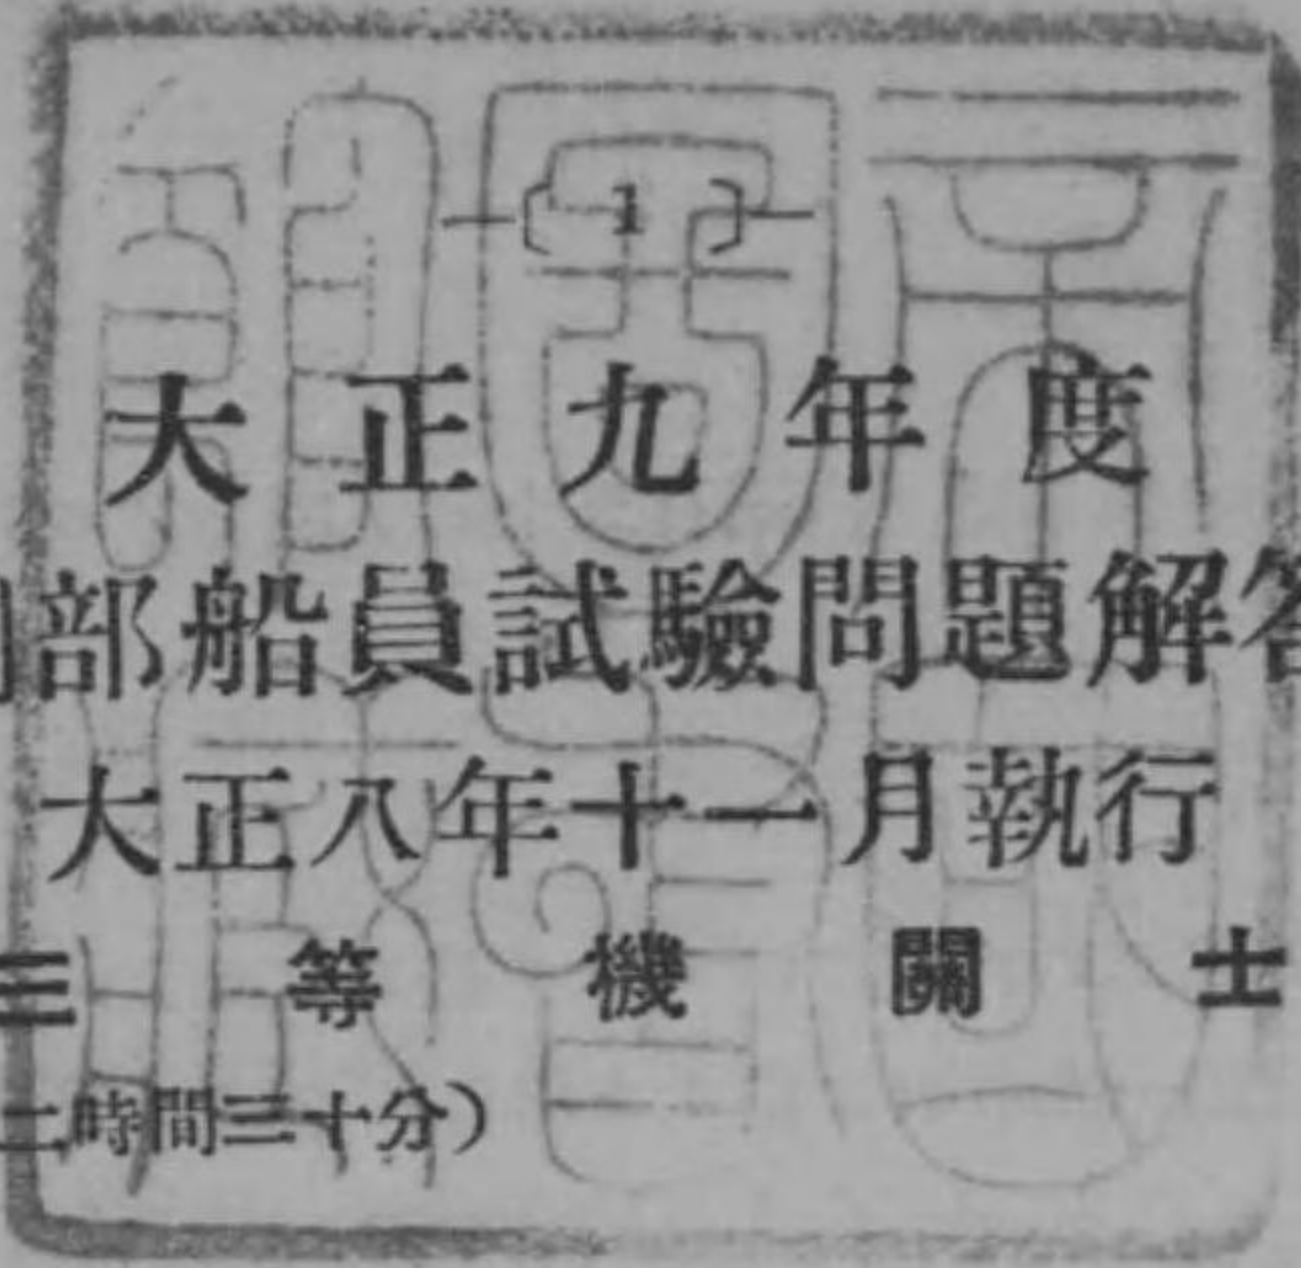 —[ 1 ]—
大正九年度
部船員試驗問題解答
大正八年十一月執行
三等機關士
二時間三十分）